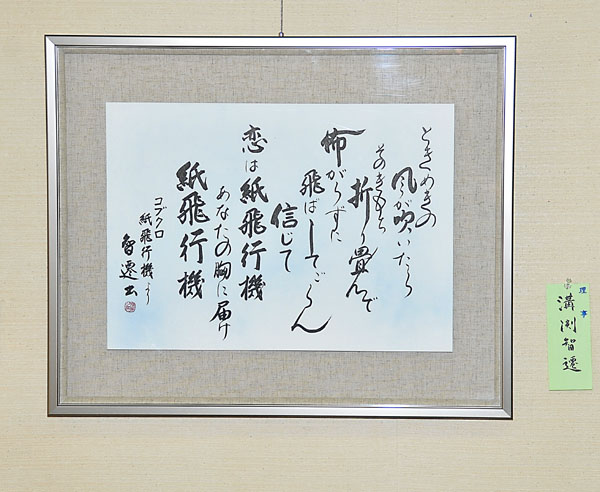 ときめきの
風が吹いたら
そのきもち
折り畳んで
怖がらずに
飛ばしてごらん
信じて
恋は紙飛行機
あなたの胸に届け
紙飛行機
コブクロ
紙飛行機より
智遷書
理事
溝渕智遷